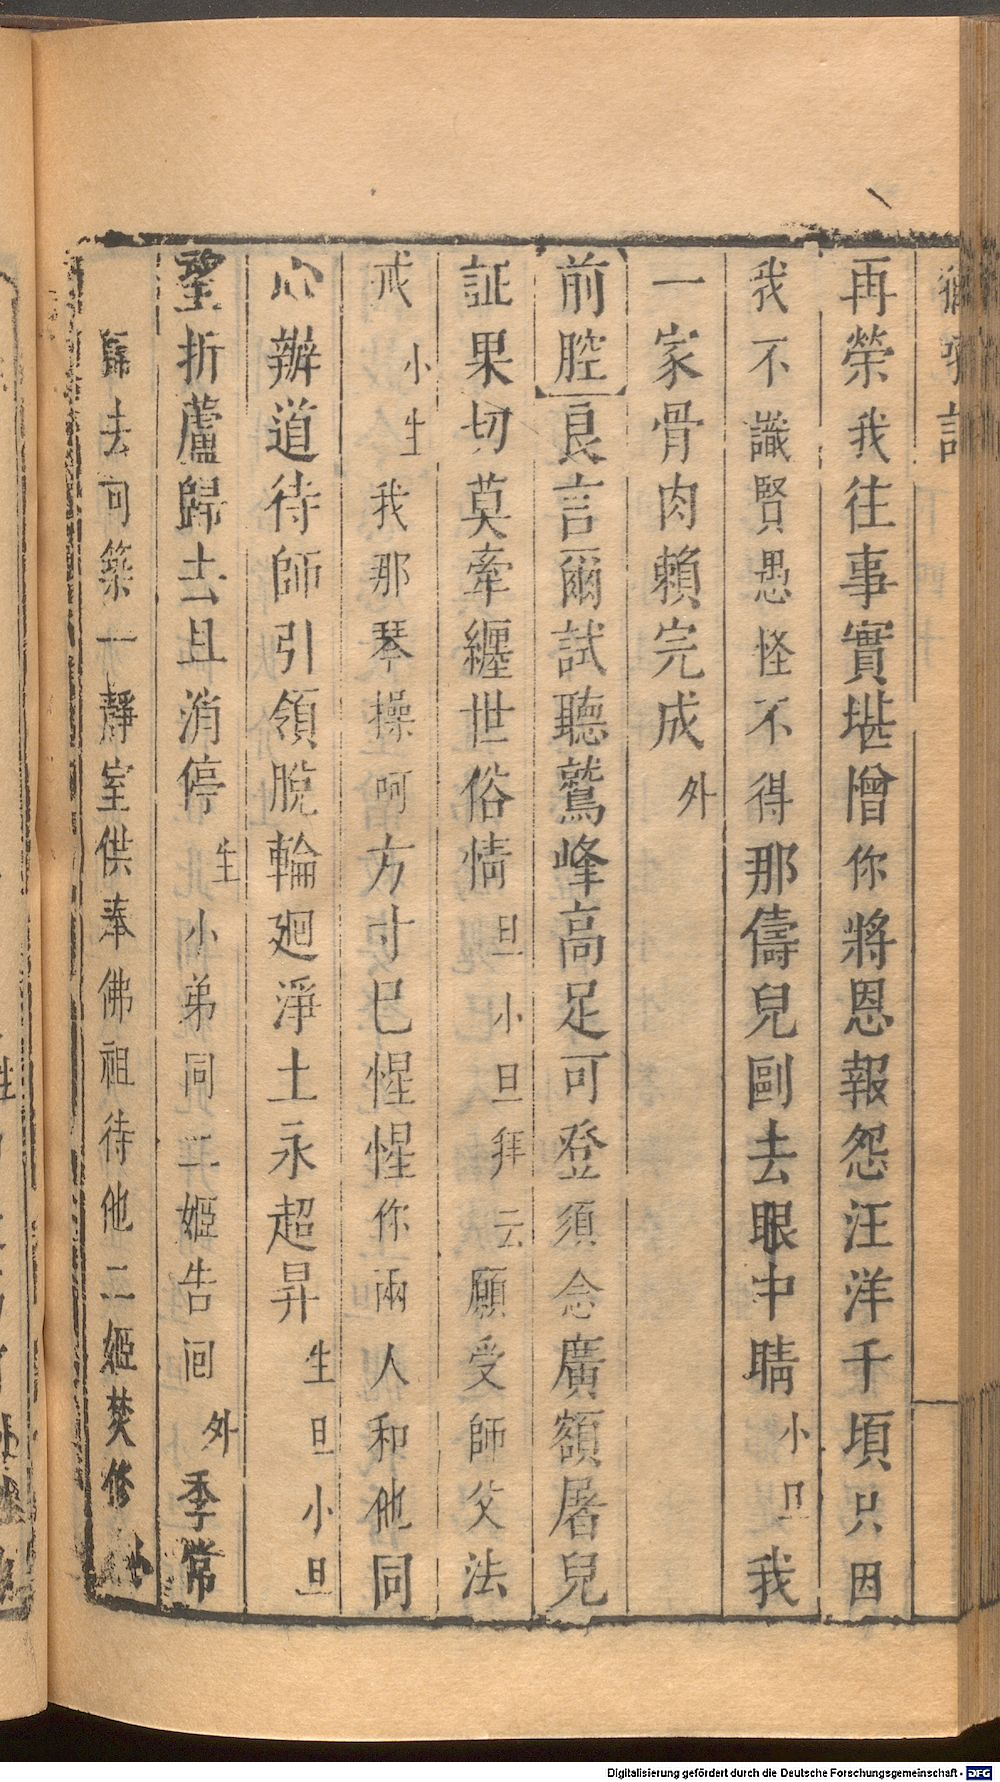 再榮我往事實堪憎你將恩報怨汪洋千頃只因
我不識賢愚怪不得那儔兒剾去眼中睛小旦我
一家骨肉賴完成外
【前腔】良言爾試聽鷲峰高足可登須念廣額屠兒
証果切莫牽纏世俗情旦小旦拜云願受師父法
戒小生我那琴操呵方寸巳惺惺你兩人和他同
心辦道待師引領脫輪廻淨土永超昇生旦小旦
望折蘆歸去且消停生小弟同二姬告囘外季常
歸去可築一靜室供奉佛祖待他二姬焚修小
Digitalisierung gefördert durch die Deutsche Forschungsgemeinschaft - DFG